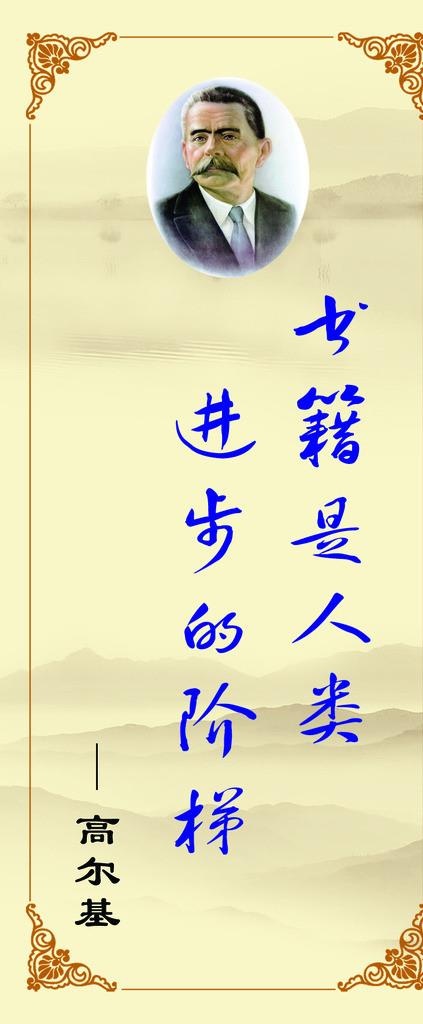 书籍是人类
进步的阶梯
——高尔基